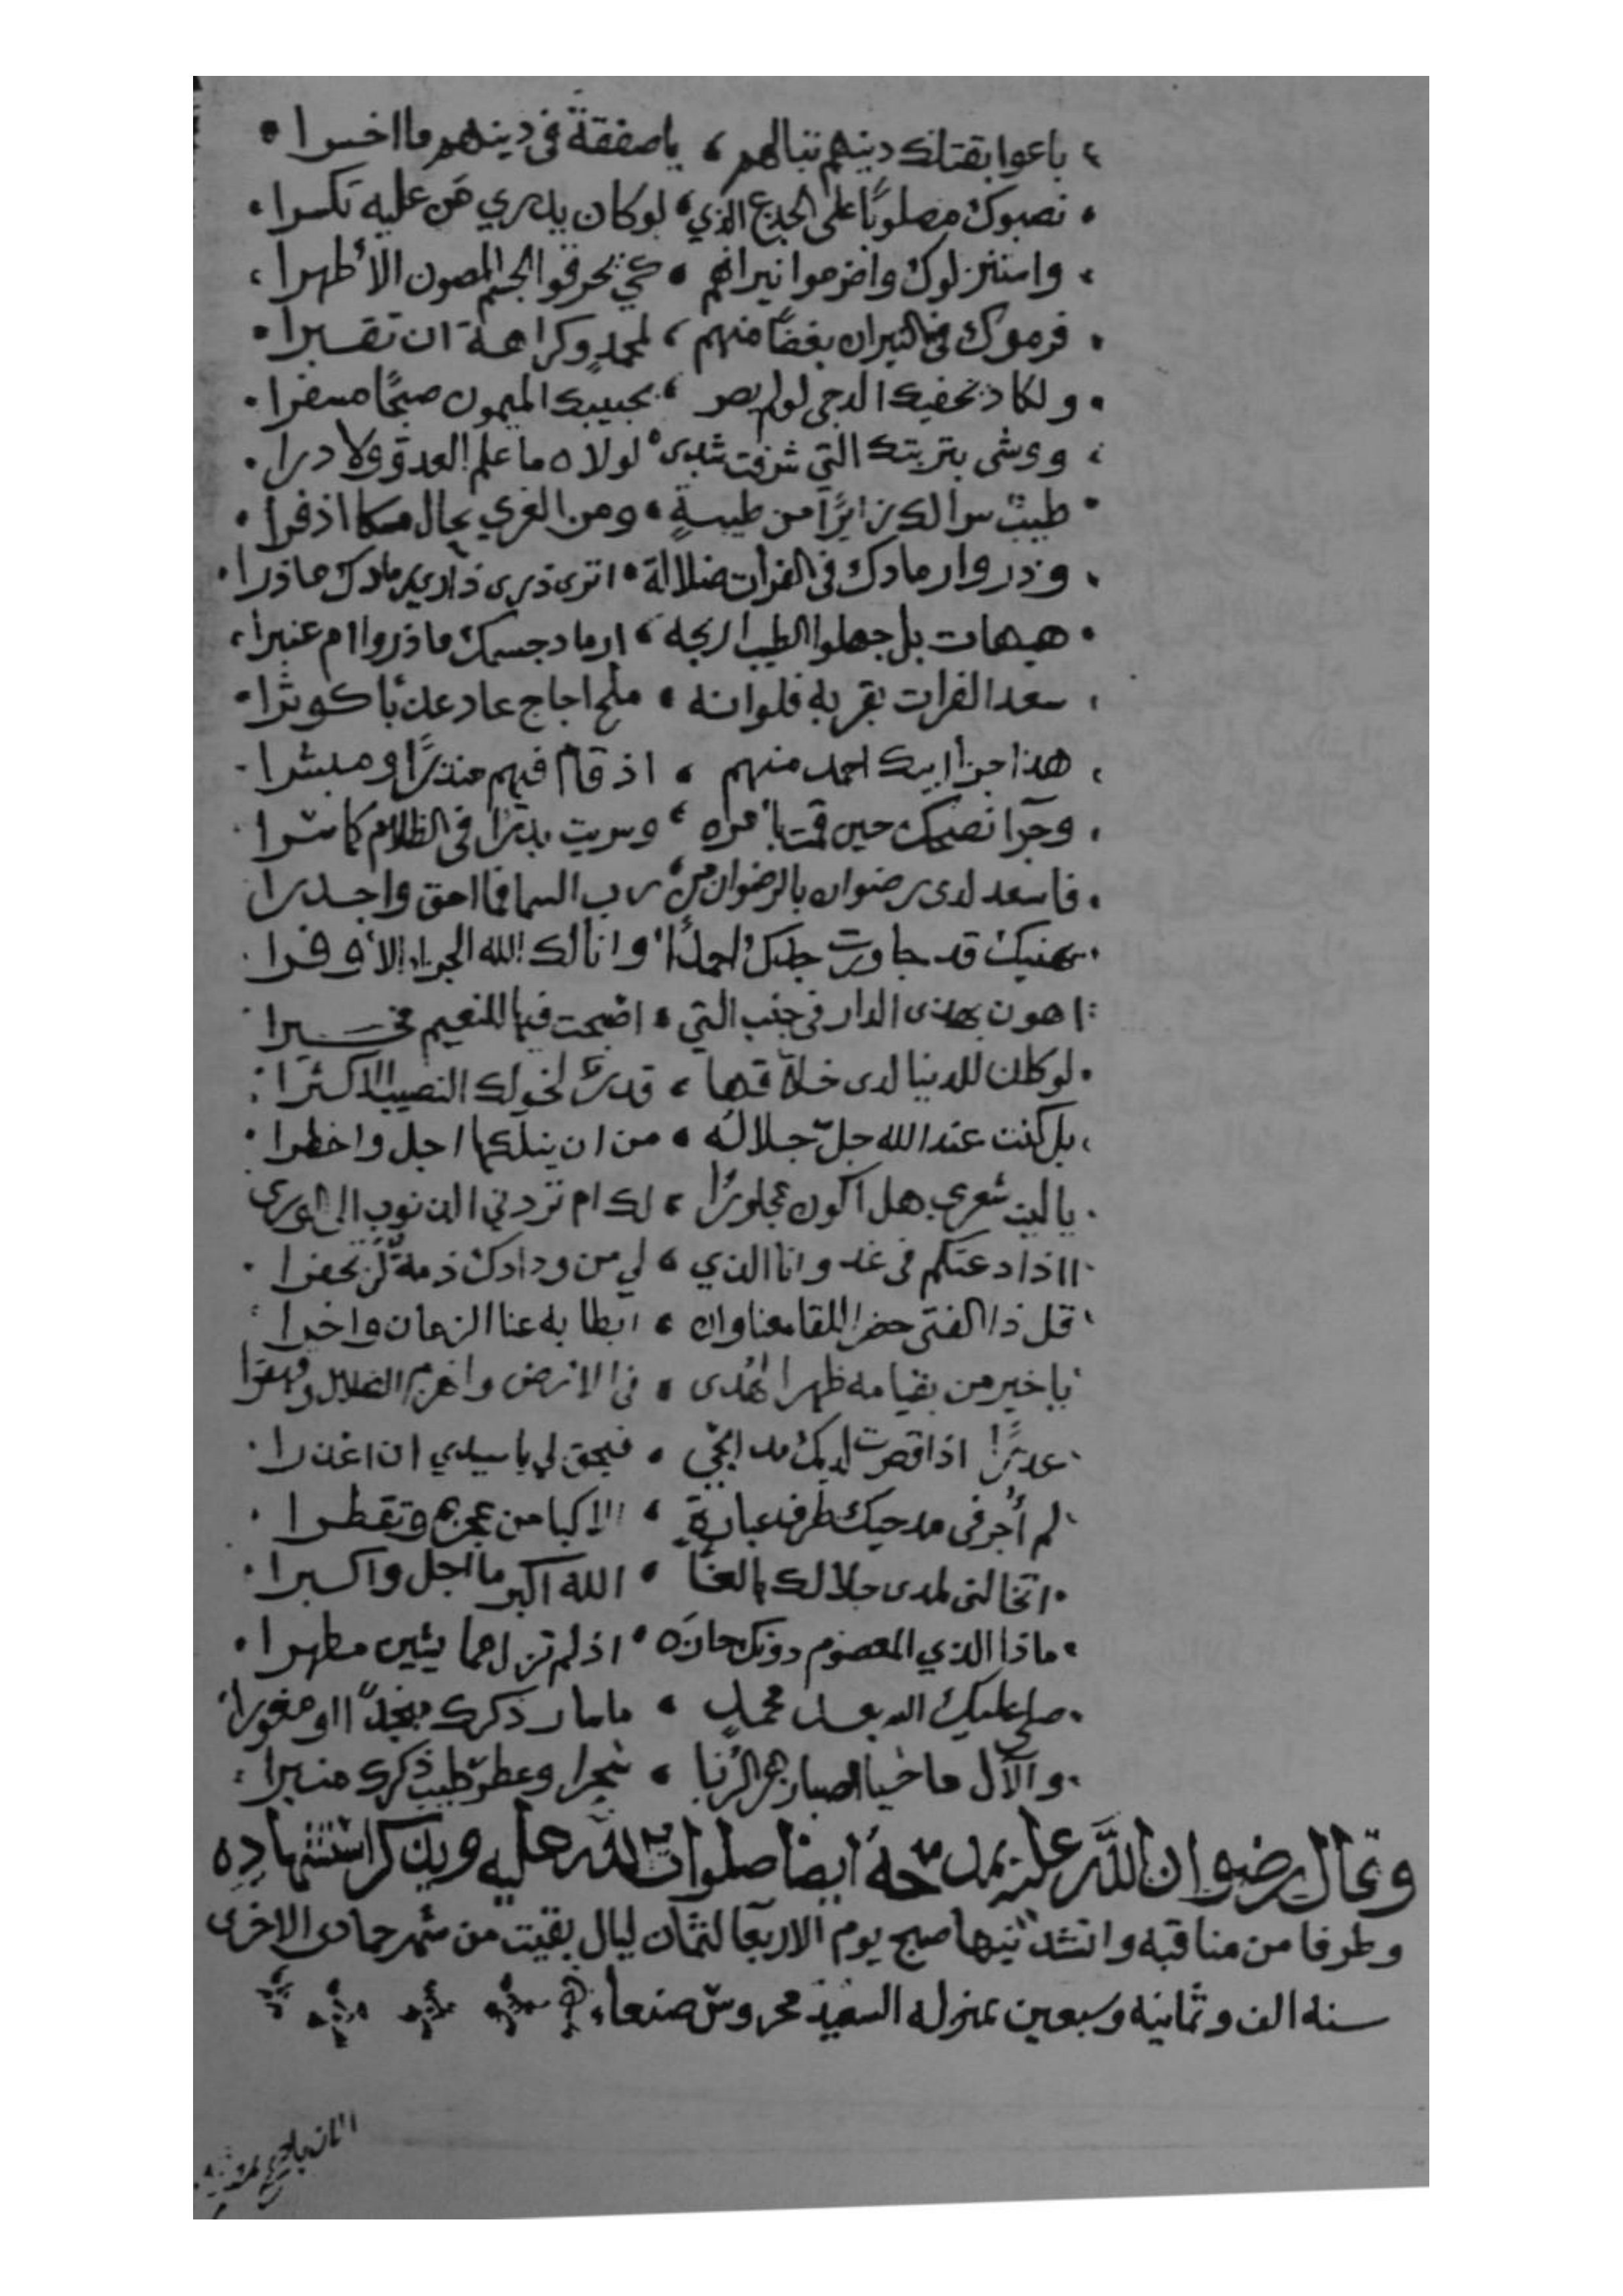 باعوا بقتلك دينهم تبا لهم ، يا صفقة في دينهم ما اخسرا
نصبوك مصلوبًا على الجدع الذي ، لوكان يدري من عليه تكسرا
واستنزلوك واضرموا نيرانهم ، كي يحرقوا الجسم المصون الأطهرا
فرموك في النيران بغضًا منهم ، لمحمدٍ وكراهة ان تقبرا
ولكاد يخفيك الدجى لو لم يصر ، بجبينك الميمون صبحًا مسفرا
ووشى بتربتك التي شرفت شذى ، لولاه ما علم العدو ولا درا
طيبٌ سرا لك زايرًا من طيبةٍ ، ومن الغري يخال مسكا اذفرا
وذروا رمادك في الفرات ضلالة ، اترى ذرى ذاري رمادك ما ذرا
هيهات بل جهلوا لطيب اريجه ، ارماد جسمك ما ذروا ام عنبرا
سعد الفرات بقربه فلو انه ، ملح اجاج عاد عذبًا كوثرا
هذا جزا ابيك احمد منهم ، اذ قام فيهم منذرًا ومبشرا
وجزا نصحك حين قمت بأمره ، وسريت بدرًا في الظلام كما سرا
فاسعد لدى رضوان بالرضوان من ، رب السما فما احق واجدرا
يهنيك قد جاورت جدك احمدًا ، وانالك الله الجزاء الأوفرا
اهون بهذى الدار في جنب التي ، اصبحت فيها للنعيم مخيرا
لو كان للدنيا لدى خلاقها ، قدرٌ لخولك النصيب الاكثرا
بل كنت عند الله جل جلاله ، من ان ينيلكها اجل واخطرا
يا ليت شعري هل اكون مجاورًا ، لك ام تردني الذنوب الى الورى
ااذاد عنكم في غد وانا الذي ، لي من ودادك ذمة لن تخفرا
قل ذا الفتى حضر اللقا معنا وان ، ابطا به عنا الزمان واخرا
يا خير من بقيامه ظهر الهدى ، في الارض وانهزم الضلال وقهقرا
عذرًا اذا قصرت لديك مدايحي ، فيحق لي يا سيدي ان اعذرا
لم أجر في مدحيك طرف عبارة ، الا كبا من عجزه وتقطرا
اتخالني لمدى جلالك بالغًا ، الله اكبر ما اجل واكبرا
ماذا الذي المعصوم دونك حازه ، اذ لم تزل مما يشين مطهرا
صلى عليك الله بعد محمدٍ ، ما سار ذكرك منجدًا او مغورا
والآل ما حيا الصبا زهر الربا ، سحرا وعطر طيب ذكرك منبرا
وقال رضوان الله عليه يمدحه ايضا صلوات الله عليه ويذكر استشهاده
وطرفا من مناقبه وانشدنيها صبح يوم الاربعا لثمان ليال بقيت من شهر جمادى الاخرى
سنة الف وثمانية وسبعين بمنزله السعيد محروس صنعاء